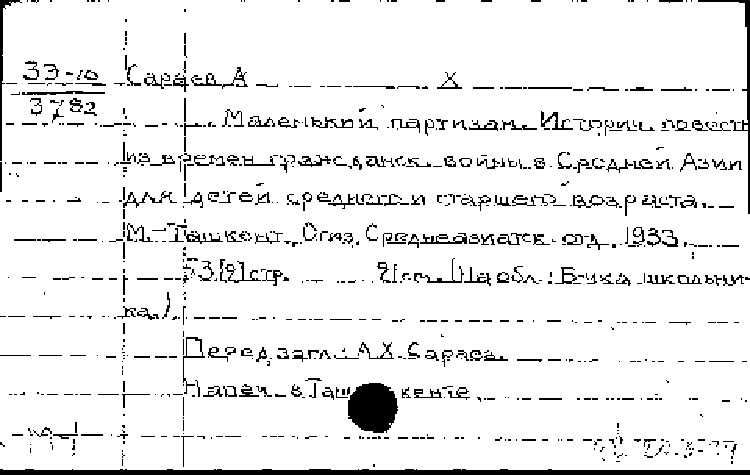 33-10 Сараев А Х
3782
Маленький партизан. Историч. повесть
из времен гражданск. войны в Средней Азии
для детей среднего и старшего возраста.
М.-Ташкент, Огиз, Среднеазиатск. отд. 1933.
53 [2] стр. (На обл.: Б-чка школьни-
ка.).
Перед загл.: А.Х. Сараев.
Напеч. в Ташкенте.